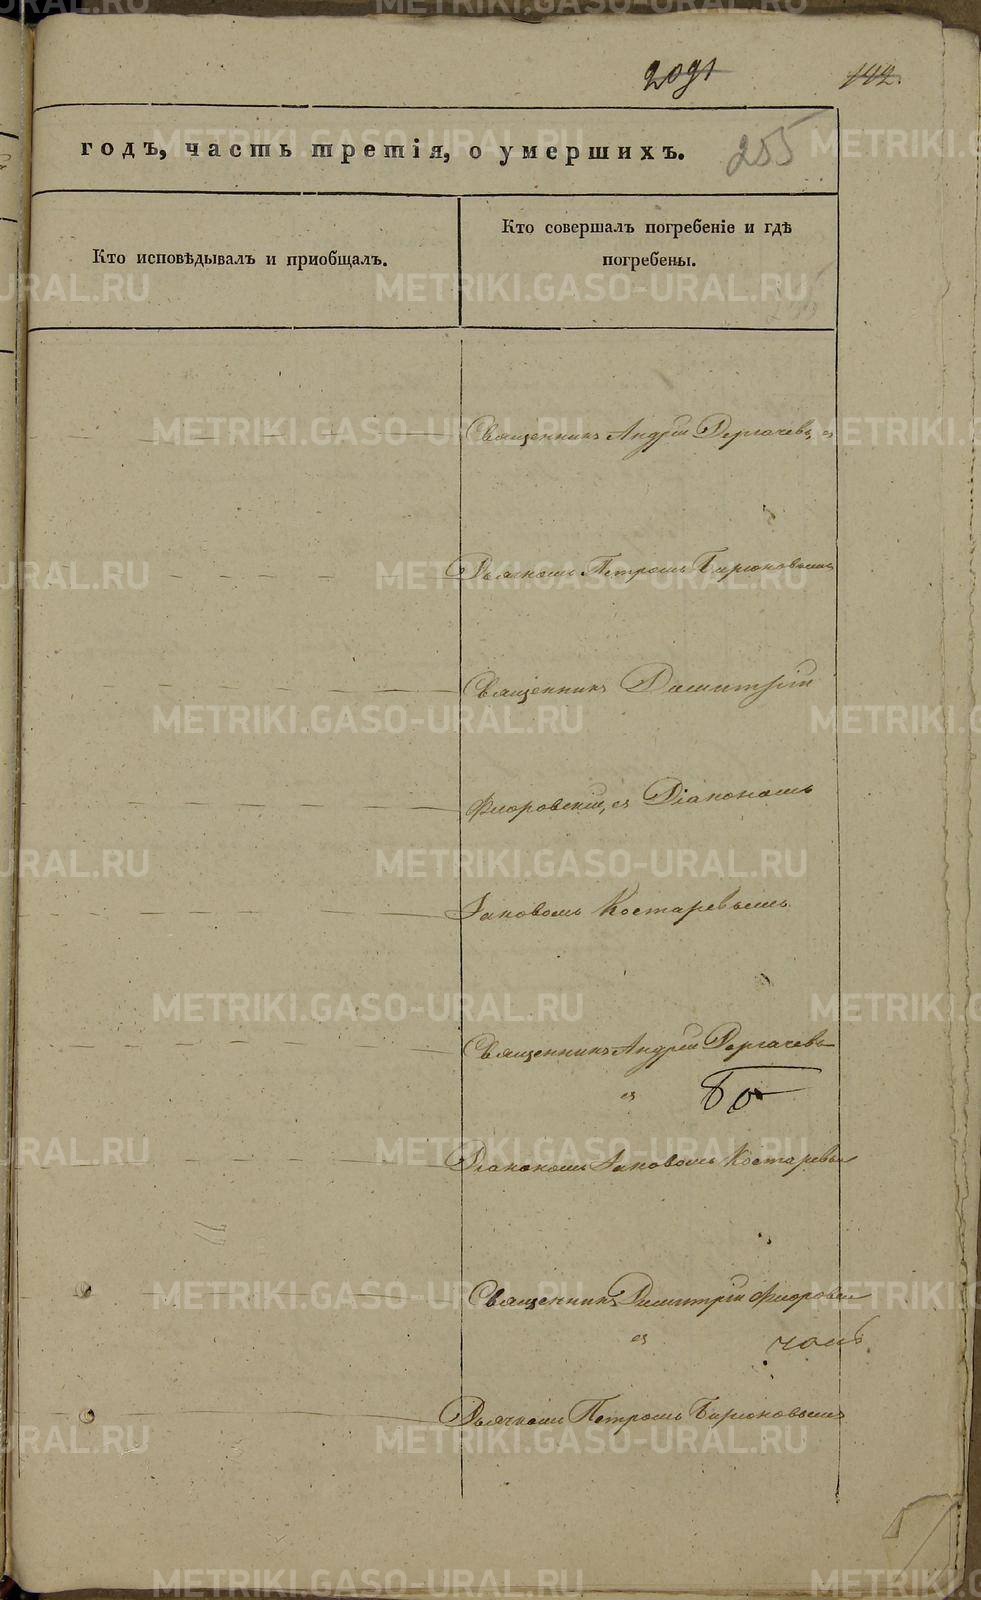 209
142.
годъ, часть третія, о умершихъ.
255
Кто исповѣдывалъ и приобщалъ.
Кто совершалъ погребеніе и гдѣ
погребены.
Священникъ Андрей Дергачевъ, съ
Дьячкомъ Петромъ Бирюковымъ
Священникъ Димитрій
Флоровскій, съ Діакономъ
Іаковомъ Костаревымъ.
Священникъ Андрей Дергачевъ
съ
Діакономъ Іаковомъ Костаревы
Священникъ Димитрій Флоровск
съ
Дьячкомъ Петромъ Бирюковымъ
METRIKI.GASO-URAL.RU